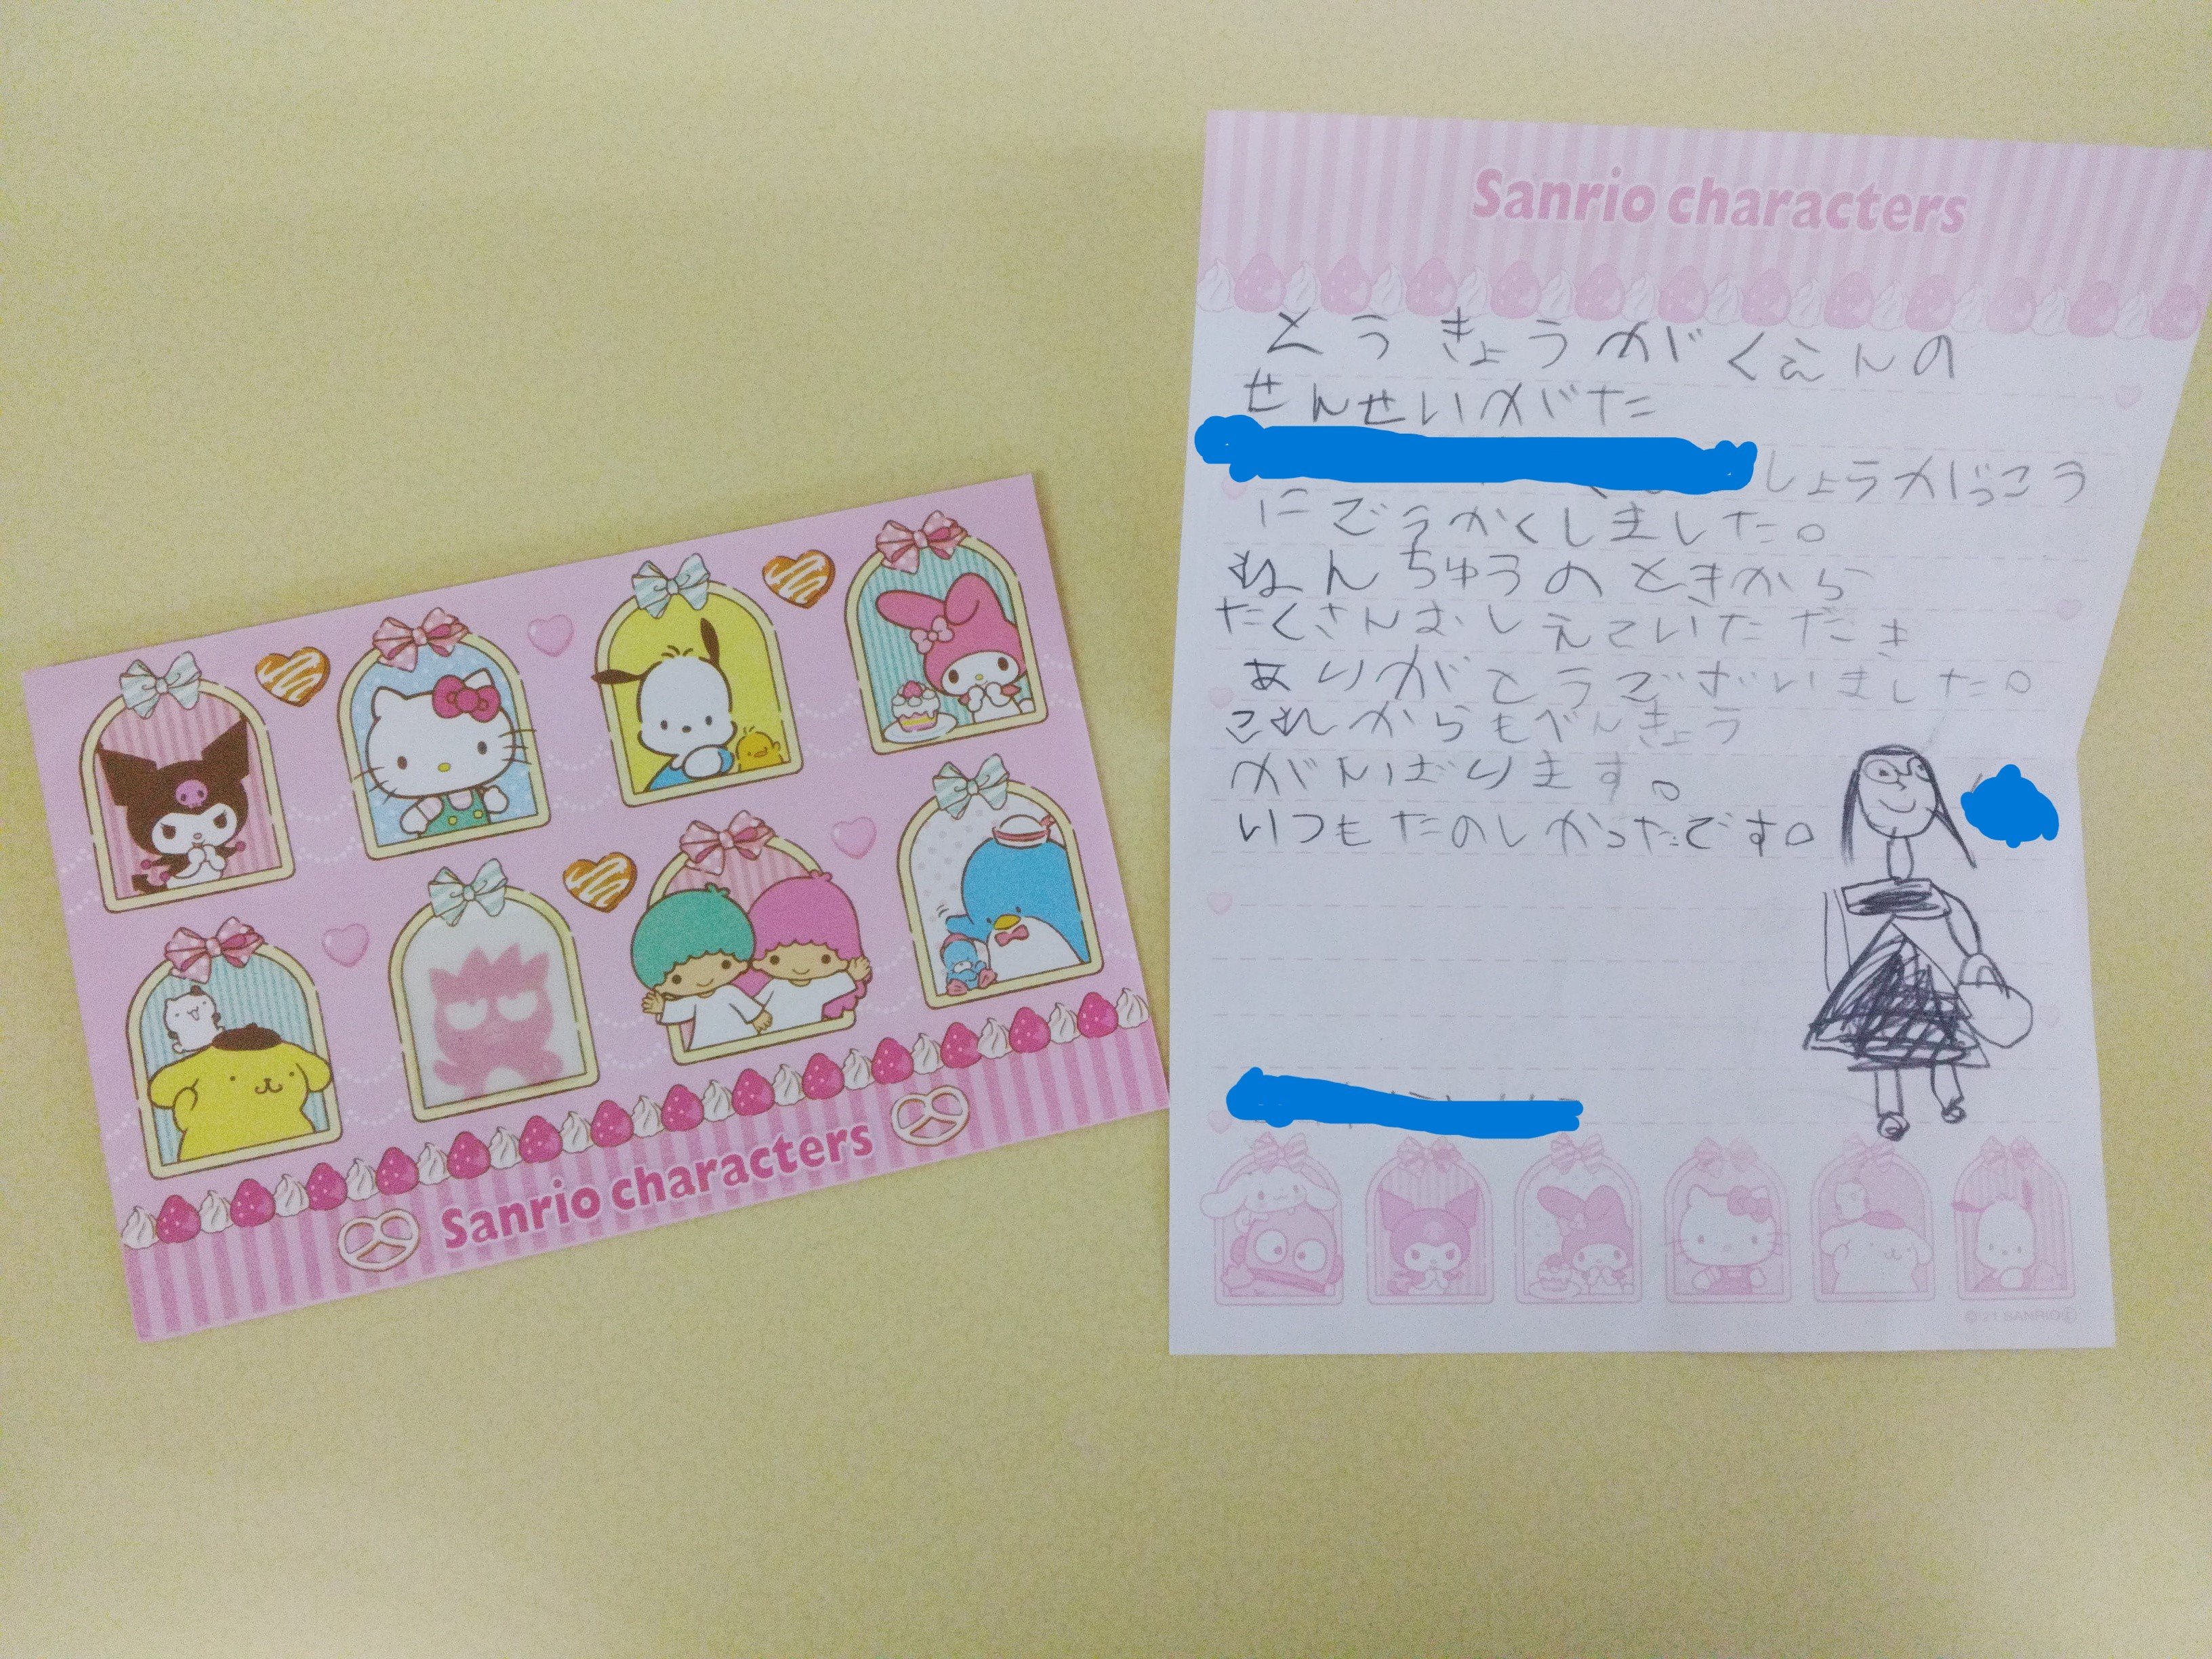 Sanrio characters
Sanrio characters
とうきょうがくえんの
せんせいがた
しょうがっこう
にごうかくしました。
ねんちゅうのときから
たくさんおしえていただき
ありがとうございました。
これからもべんきょう
がんばります。
いつもたのしかったです。